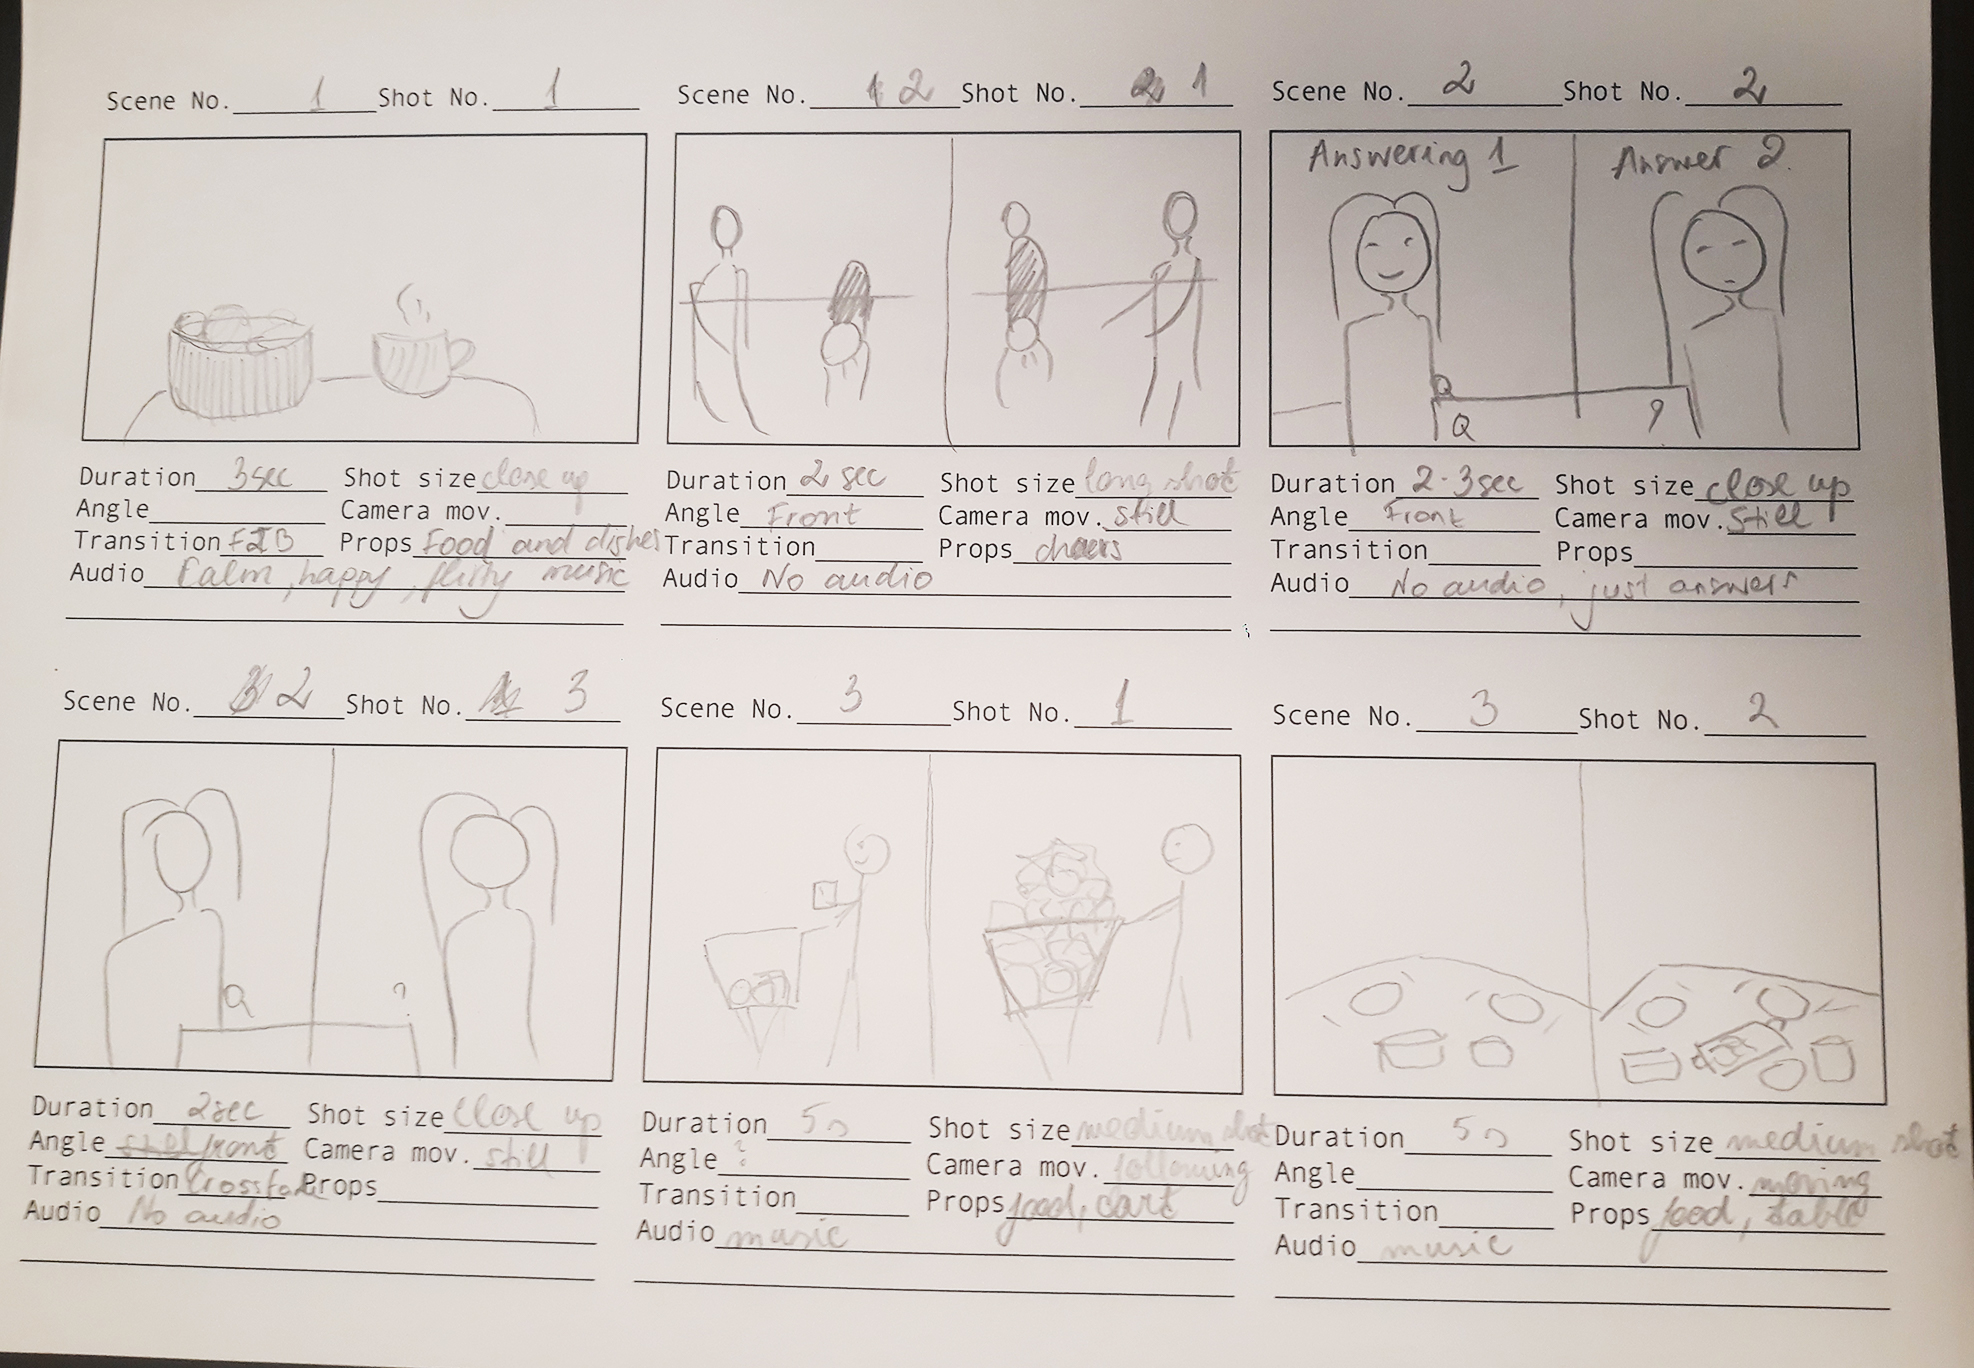 Scene No. 1 Shot No. 1
Duration 3sec Shot size close up
Angle Camera mov.
Transition FIB Props Food and dishes
Audio Calm, happy, flirty music
Scene No. 2 Shot No. 1
Duration 2 sec Shot size long shot
Angle Front Camera mov. still
Transition Props
Audio No audio
Scene No. 2 Shot No. 2
Answering 1 Answer 2.
Q
Q ?
Duration 2-3sec Shot size close up
Angle Front Camera mov. still
Transition Props
Audio No audio, just answers
Scene No. 2 Shot No. 3
Q ?
Duration 2sec Shot size close up
Angle front Camera mov. still
Transition Props
Audio No audio
Scene No. 3 Shot No. 1
Duration 5s Shot size medium shot
Angle ? Camera mov. following
Transition Props food, cart
Audio music
Scene No. 3 Shot No. 2
Duration 5s Shot size medium shot
Angle Camera mov. moving
Transition Props food, table
Audio music